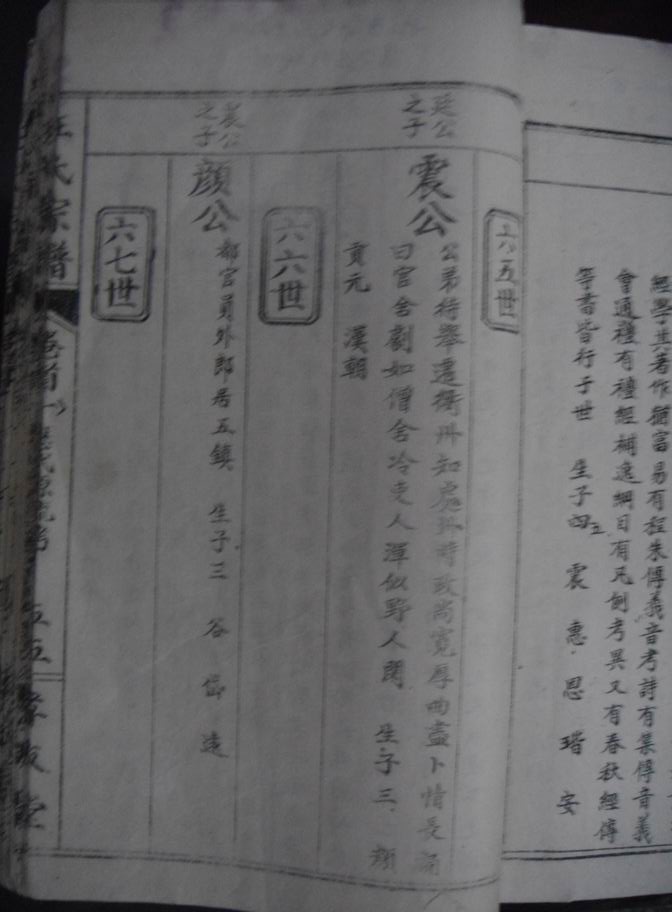 經學其著作篇富易有程朱傳義音考詩有集傳音義
會通禮有禮經補逸綱目有凡例考異又有春秋經傳
等書皆行于世 生子四五 震 惠 恩 瑎 安
六五世
廷公之子
震公
公弟特舉遷衢州知處州時政尚寬厚曲盡卜情長
曰官舍劇如僧舍冷吏人渾似野人閑 生子三 顏
貢元 漢朝
六六世
震公之子
顏公
都官員外郎居五鎮 生子三 谷 岱 遠
六七世
汪氏宗譜 卷首 五五